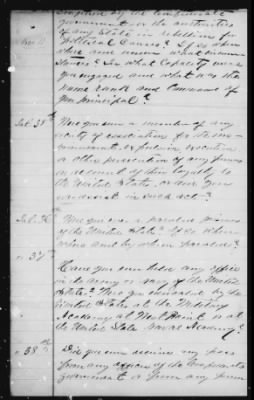 employed by the Confederate
government or the authorities
of any State in rebellion for
Political Causes? If so when
where and under what circum-
stances? In what Capacity were
you engaged and what was the
name rank and Command of
your principal?
Int. 35th Were you ever a member of any
society or association for the im-
prisonment expulsion execution
or other persecution of any person
on account of his loyalty to
the United States, or did you
ever assist in such act?
Int. 36th Were you ever a paroled prisoner
of the United States? If so when
where and by whom paroled?
" 37th
Have you ever held any office
in the army or navy of the United
States? Were you educated by the
United States at the Military
Academy at West Point or at
the United States Naval Academy?
" 38th Did you ever receive any pass
from any officer of the Confederate
government or from any person